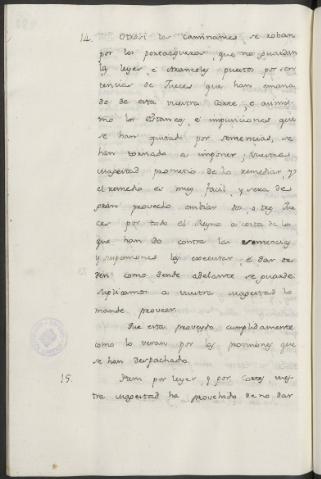 14. Otrosi los caminantes se roban
por los portazgueros, que no guardan
las leyes, e aranceles puestos por sen
tencias de Jueces que han emana
do de esta vuestra Corte, e asimis
mo los Estancos, e impusiciones que
se han quitado por sentencias, se
han tornado a imponer, Vuestra
magestad prometio de lo remediar, y
el remedio es muy facil, y sera de
gran provecho embiar dos, o tres Jue
ces por todo el Reyno a costa de los
que han ido contra las sentencias
y suponemos las executar, e dar or
den como dende adelante se guarde
suplicamos a vuestra magestad lo
mande proveer.
Que esta proveydo cumplidamente
como lo veran por las provisiones que
se han despachado.
15. Item por leyes y por Cortes vues
tra magestad ha provehado de no dar